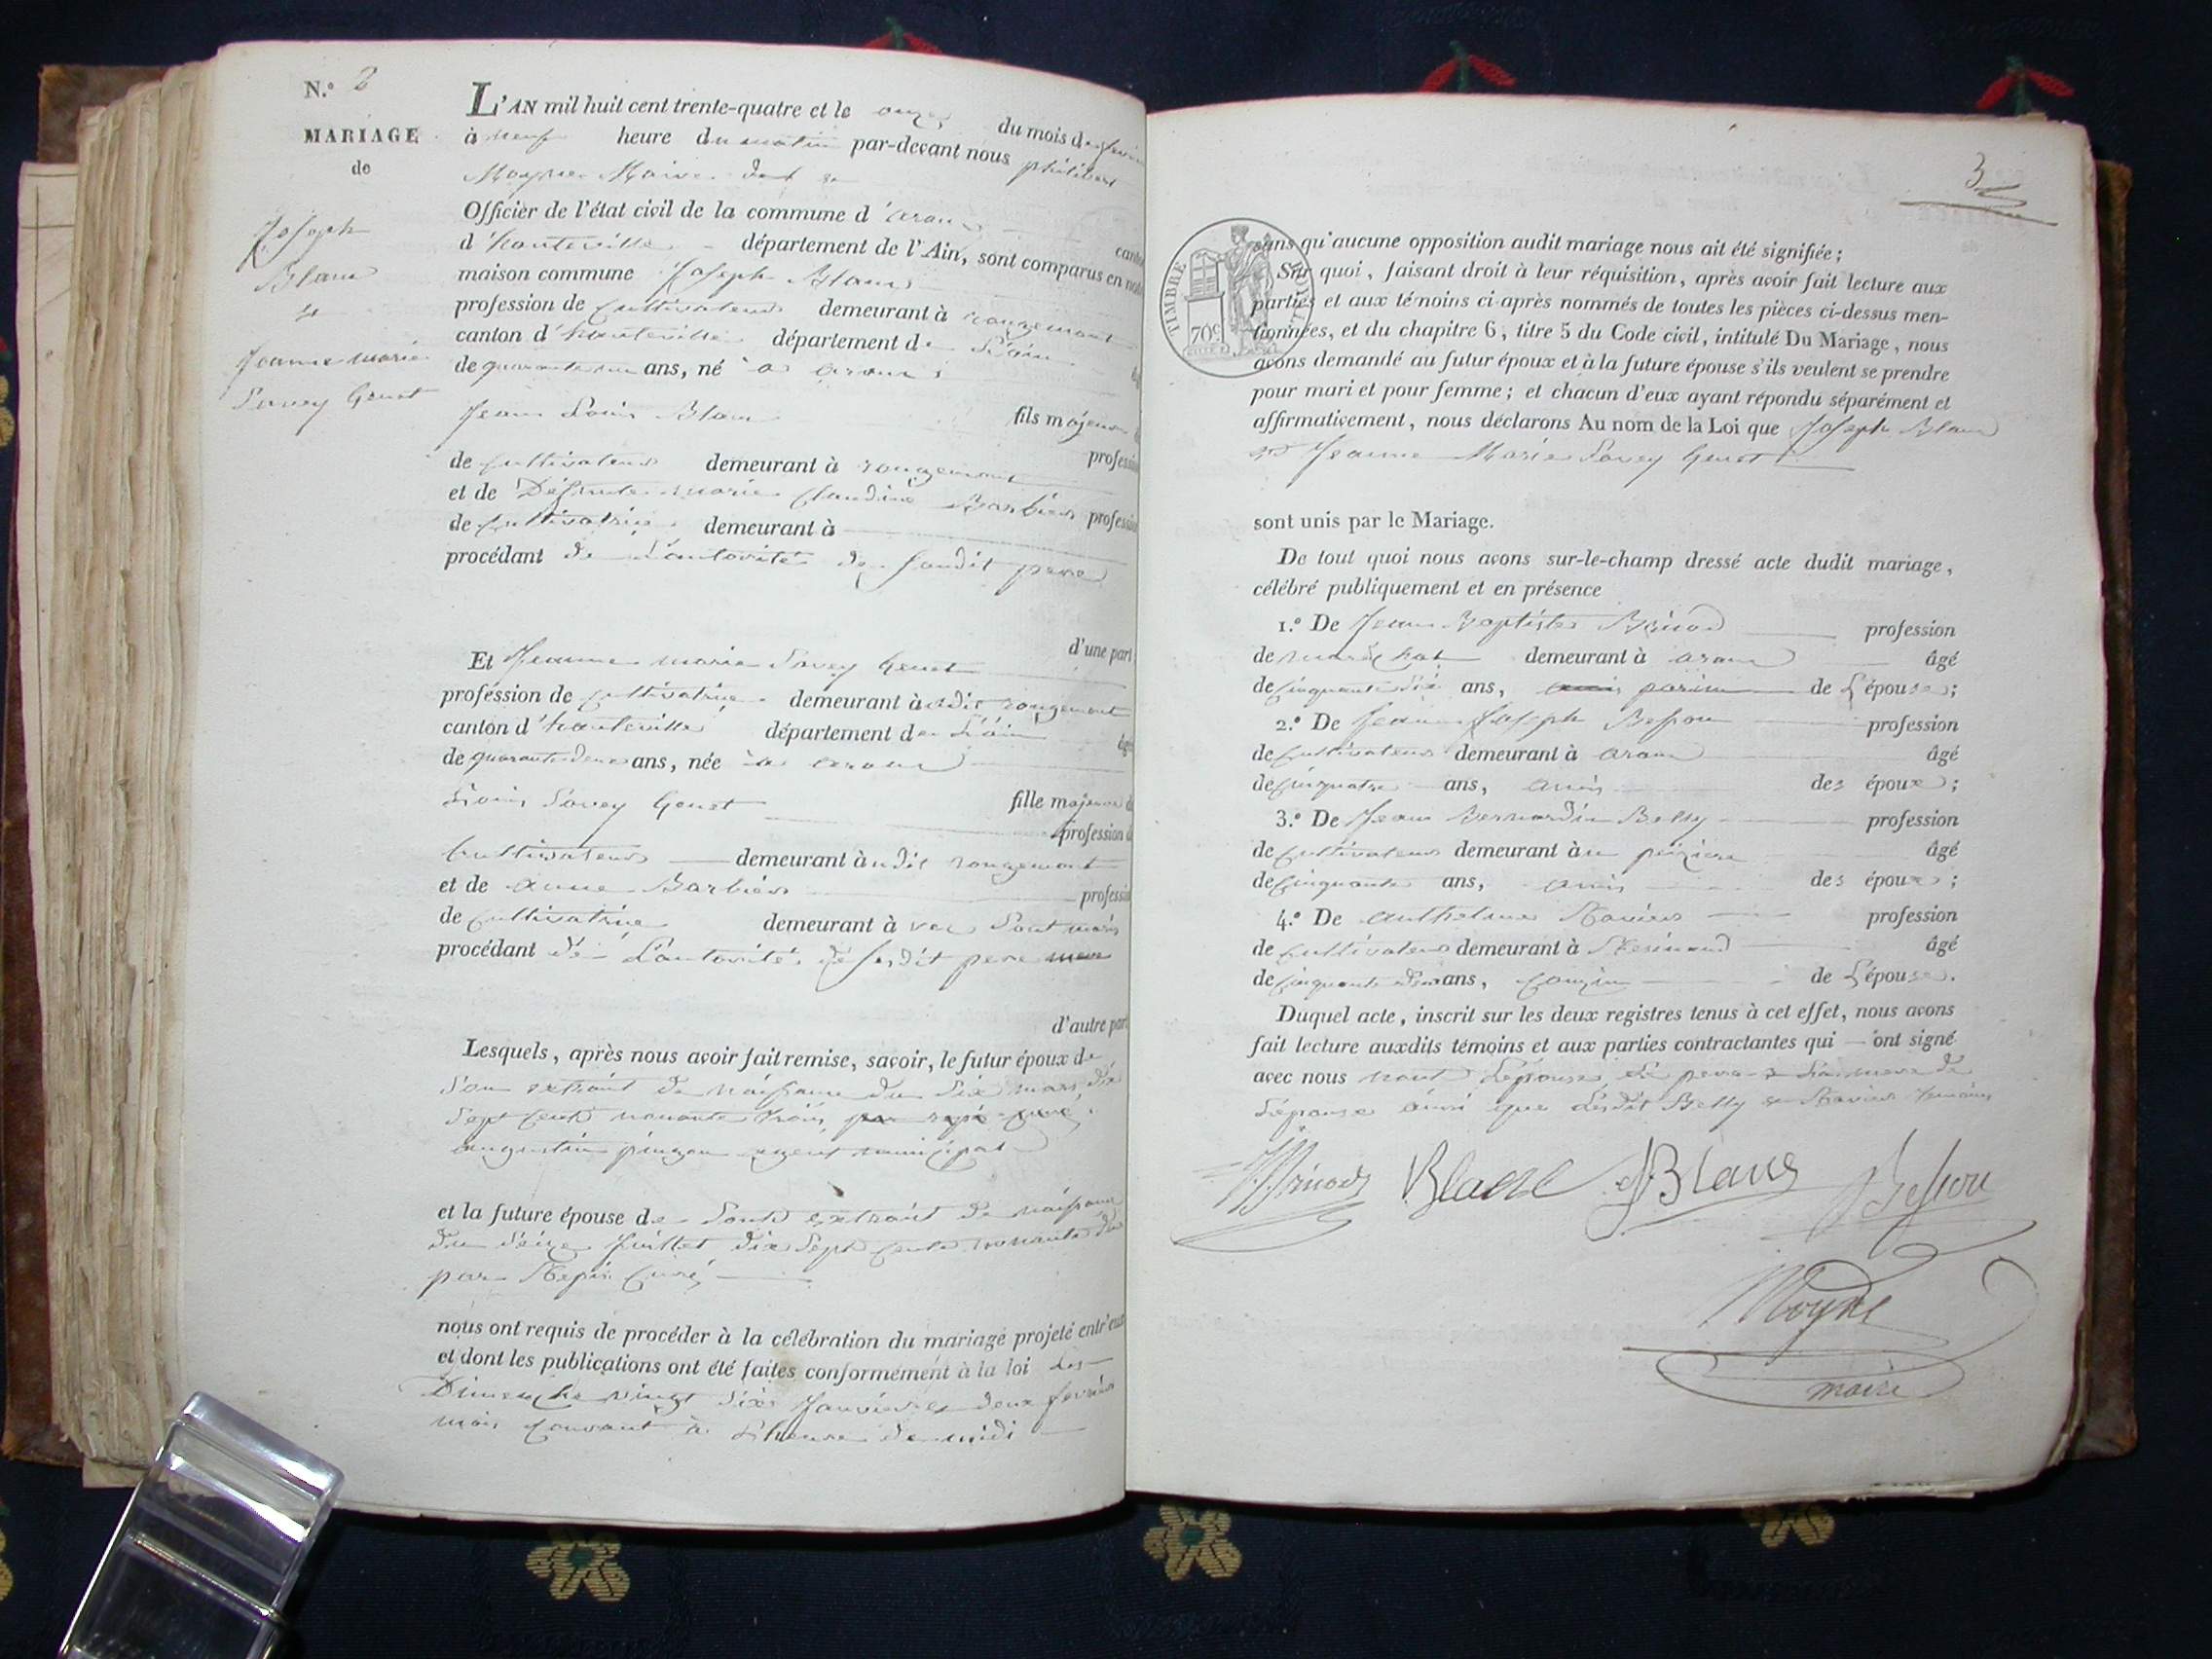 N.º 2
MARIAGE
de
Joseph
Blanc
et
Jeanne marie
Savey Genet
L'AN mil huit cent trente-quatre et le onze du mois de
à neuf heure du matin par-devant nous philibert
Moyne Maire
Officier de l'état civil de la commune d'aranc canton
d'hauteville département de l'Ain, sont comparus en notre
maison commune Joseph Blanc
profession de cultivateur demeurant à rougemont
canton d'hauteville département de L'ain
de quarante un ans, né à aranc
fils majeur
Jean Louis Blanc profession
de cultivateur demeurant à rougemont
et de Défunte marie Claudine Barbier profession
de cultivatrice demeurant à
procédant de L'autorité de Sondit pere
d'une part
Et Jeanne marie Savey Genet
profession de cultivatrice demeurant à udit rougemont
canton d'hauteville département de L'ain
de quarante deux ans, née à aranc
fille majeure
Louis Savey Genet profession
cultivateur demeurant à udit rougemont
et de anne Barbier profession
de cultivatrice demeurant à
procédant de L'autorité de pere
d'autre part
Lesquels, après nous avoir fait remise, savoir, le futur époux de
Son extrait de naissance du dix mars dix
Sept cent nonante trois
augustin pingon agent municipal
et la future épouse de Sont extrait de naissance
du Seize Juillet dix Sept cent nonante
par curé
nous ont requis de procéder à la célébration du mariage projeté entr'eux
et dont les publications ont été faites conformément à la loi les
Dimanche vingt Six Janvier et deux fevrier
mois courant à L'heure de midi
3
TIMBRE ROYAL
70c
sans qu'aucune opposition audit mariage nous ait été signifiée ;
Sur quoi, faisant droit à leur réquisition, après avoir fait lecture aux
parties et aux témoins ci-après nommés de toutes les pièces ci-dessus men-
tionnées, et du chapitre 6, titre 5 du Code civil, intitulé Du Mariage, nous
avons demandé au futur époux et à la future épouse s'ils veulent se prendre
pour mari et pour femme; et chacun d'eux ayant répondu séparément et
affirmativement, nous déclarons Au nom de la Loi que Joseph Blanc
et Jeanne Marie Savey Genet
sont unis par le Mariage.
De tout quoi nous avons sur-le-champ dressé acte dudit mariage,
célébré publiquement et en présence
1.º De Jean Baptiste profession
de maréchal demeurant à aranc âgé
de cinquante Six ans, de L'épouse;
2.º De Jean Joseph Besson profession
de cultivateur demeurant à aranc âgé
de cinquante ans, amis des époux;
3.º De Jean Bernardin Belly profession
de cultivateur demeurant à âgé
de cinquante ans, amis des époux;
4.º De anthelme profession
de cultivateur demeurant à âgé
de cinquante deux ans, couzin de L'épouse.
Duquel acte, inscrit sur les deux registres tenus à cet effet, nous avons
fait lecture auxdits témoins et aux parties contractantes qui ont signé
avec nous nont L'épouse, Le pere et La mere de
L'épouse ainsi que Lesdit Belly et temoins
Blanc J Blanc Besson
Moyne
maire